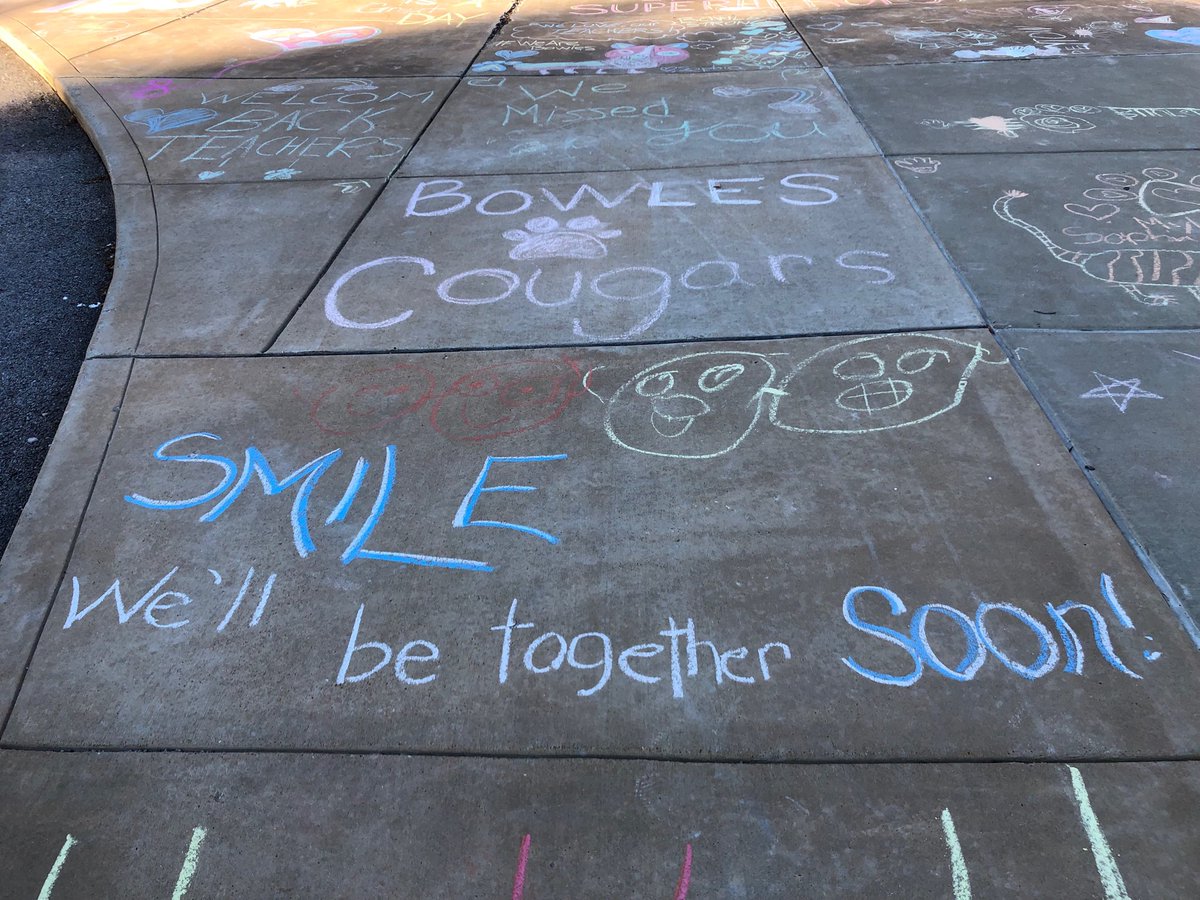 DAY
SUPER
WELCOM
BACK
TEACHERS
We
Missed
you
BOWLES
Cougars
SMILE
We'll be together Soon!